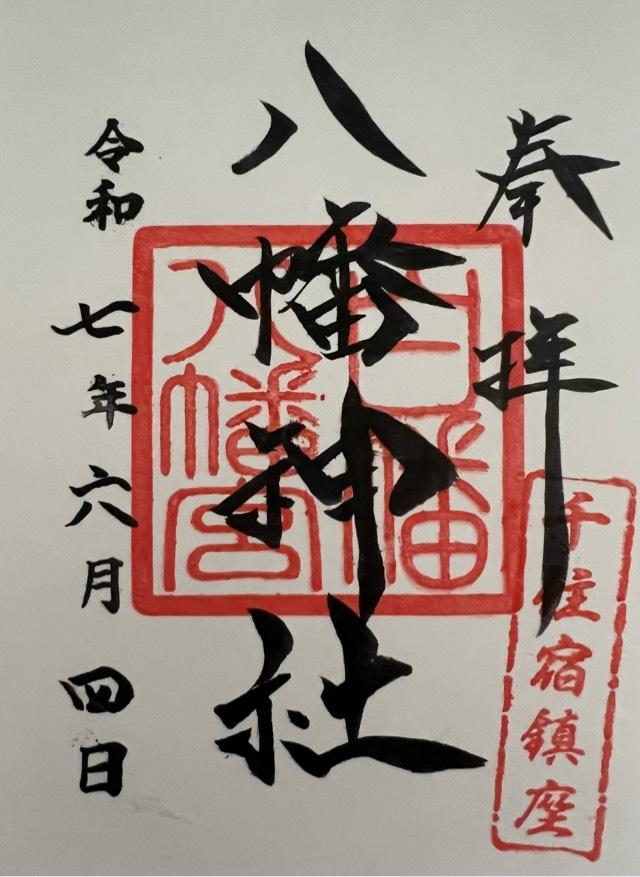 奉拝
千住宿鎮座
八幡神社
白幡
八幡宮
令和七年六月四日